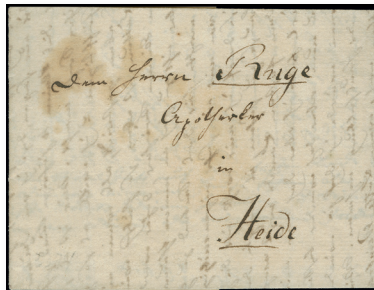 Dem Herrn Ruge
Apotheker
in
Heide